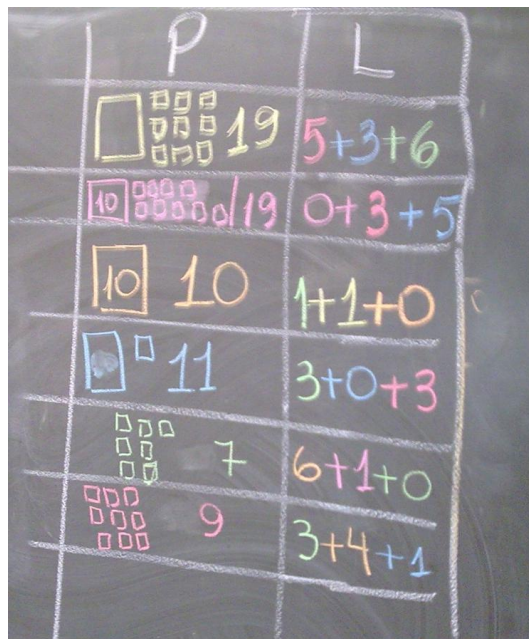 P L
19 5+3+6
10 19 0+3+5
10 10 1+1+0
11 3+0+3
7 6+1+0
9 3+4+1